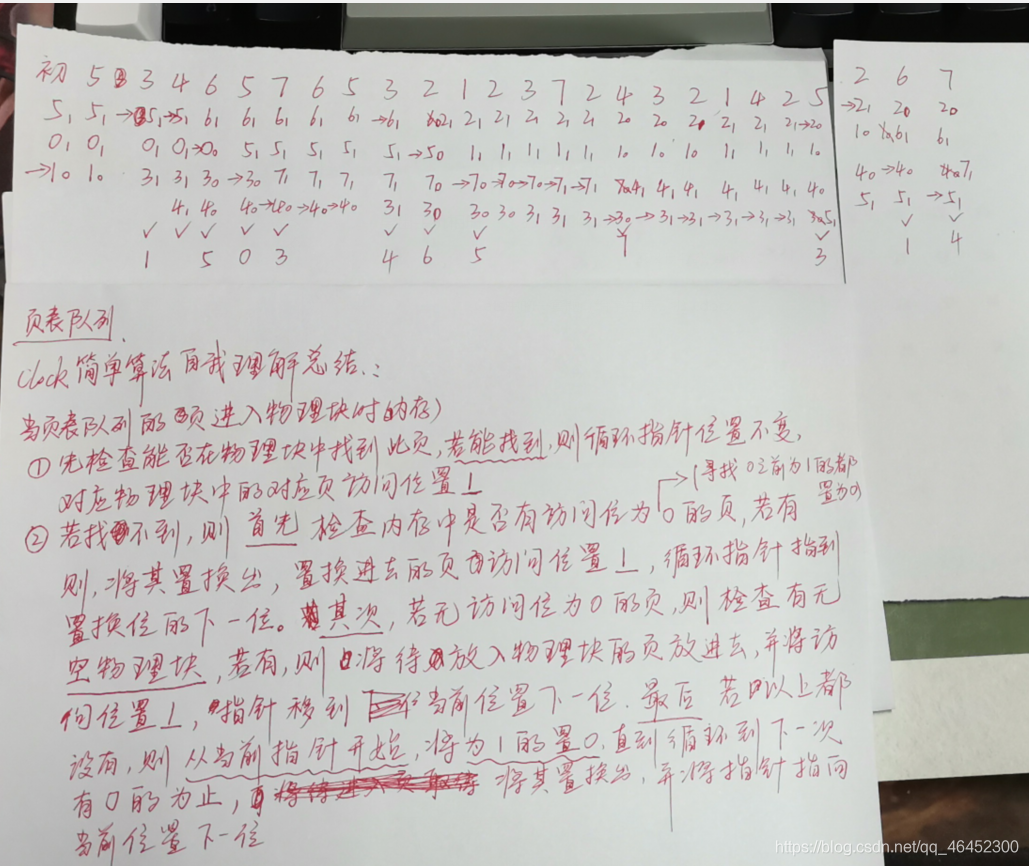 初 5 3 4 6 5 7 6 5 3 2 1 2 3 7 2 4 3 2 1 4 2 5 2 6 7
5₁ 5₁ →5₁ →5₁ 6₁ 6₁ 6₁ 6₁ 6₁ →6₁ 2₁ 2₁ 2₁ 2₁ 2₁ 2₁ 2₀ 2₀ 2₁ 2₁ 2₁ 2₁ →2₀ →2₁ 2₀ 2₀
0₁ 0₁ 0₁ 0₁ →0₀ 5₁ 5₁ 5₁ 5₁ 5₁ →5₀ 1₁ 1₁ 1₁ 1₁ 1₁ 1₀ 1₀ 1₀ 1₁ 1₁ 1₁ 1₀ 1₀ 6₁ 6₁
→1₀ 1₀ 3₁ 3₁ 3₀ →3₀ 7₁ 7₁ 7₁ 7₁ 7₀ →7₀ →7₀ →7₀ →7₁ →7₁ 4₁ 4₁ 4₁ 4₁ 4₁ 4₁ 4₀ 4₀ →4₀ 7₁
4₁ 4₀ 4₀ →4₀ →4₀ →4₀ 3₁ 3₀ 3₀ 3₀ 3₁ 3₁ 3₁ →3₀ →3₁ →3₁ →3₁ →3₁ →3₁ 5₁ 5₁ 5₁ →5₁
✓ ✓ ✓ ✓ ✓ ✓ ✓ ✓ ✓ ✓ ✓ ✓
1 5 0 3 4 6 5 7 3 1 4
页表队列
Clock简单算法自我理解总结：
当页表队列的页进入物理块时(内存)
① 先检查能否在物理块中找到此页,若能找到,则循环指针位置不变,
对应物理块中的对应页访问位置1
→(寻找0之前为1的都
置为0)
② 若找不到,则 首先 检查内存中是否有访问位为0的页,若有
则,将其置换出,置换进去的页访问位置1,循环指针指到
置换位的下一位。其次,若无访问位为0的页,则检查有无
空物理块,若有,则将待放入物理块的页放进去,并将访
问位置1,指针移到当前位置下一位.最后 若以上都
没有,则从当前指针开始,将为1的置0,直到循环到下一次
有0的为止,将其置换出,并将指针指向
当前位置下一位
https://blog.csdn.net/qq_46452300